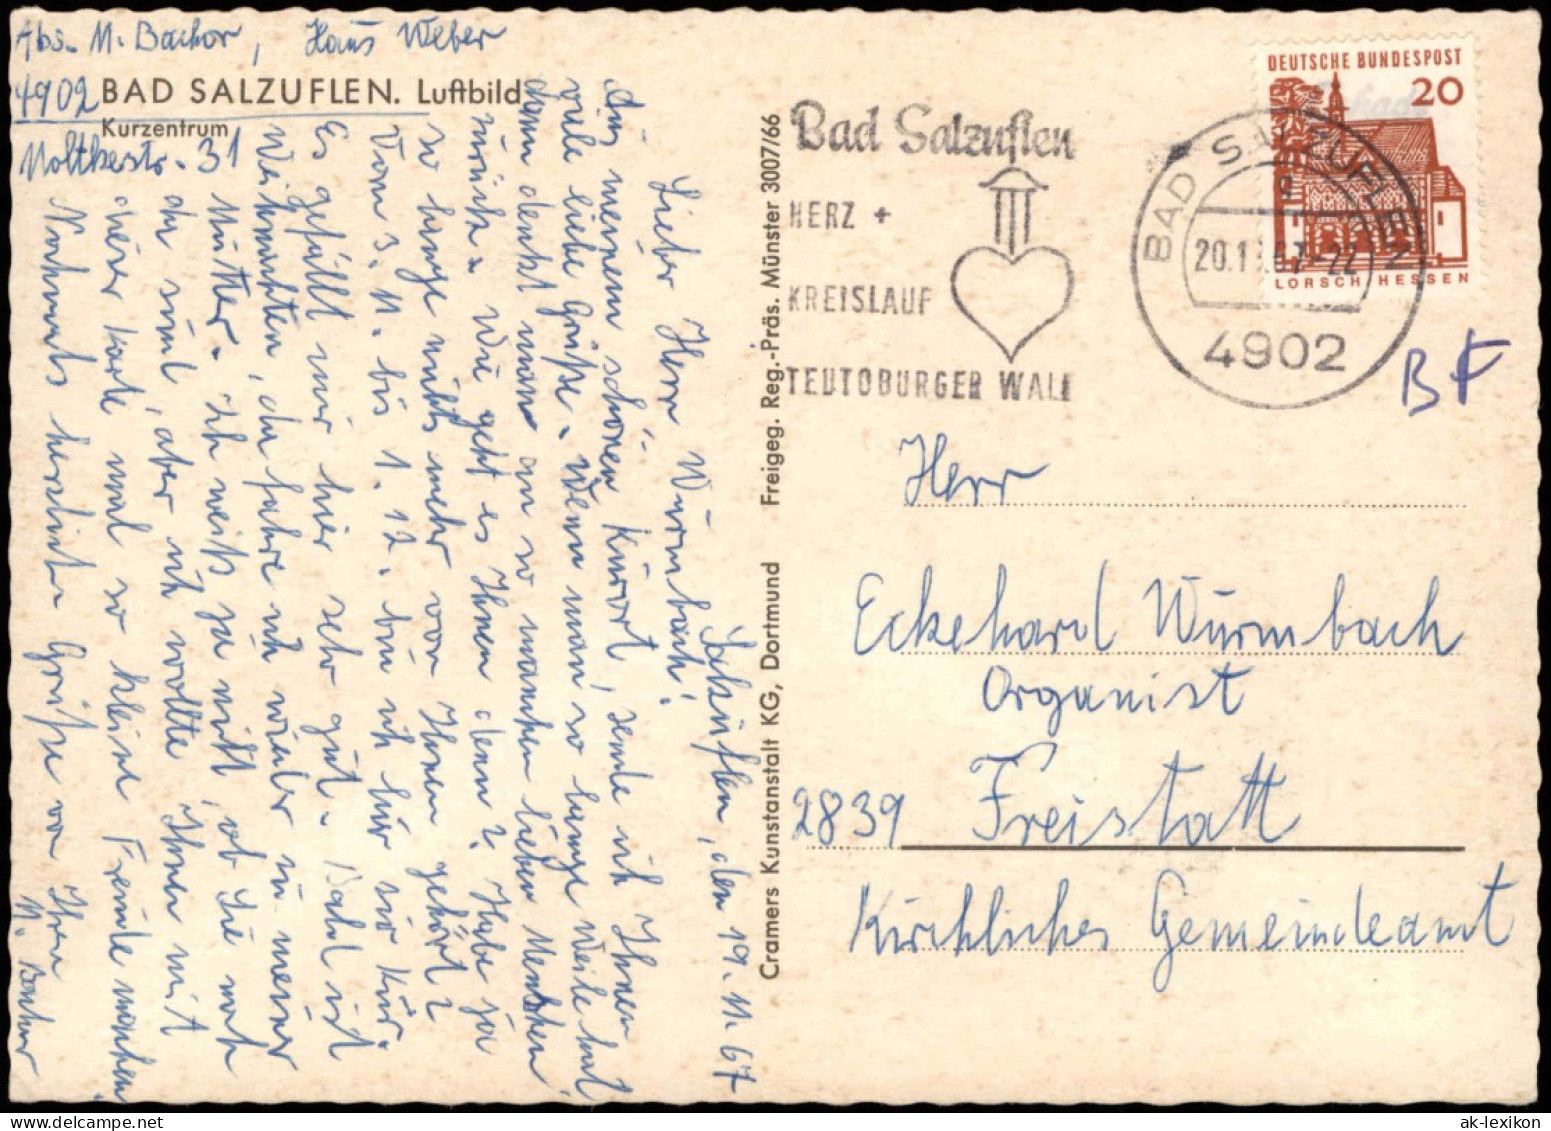 Abs. M. Bachor, Haus Weber
4902 BAD SALZUFLEN. Luftbild
Kurzentrum
Moltkestr. 31
Salzuflen, den 19.11.67
Lieber Herr Wurmbach!
Aus meinem schönen Kurort, sende ich Ihnen
viele liebe Grüße. Wenn man so lange Weile hat
dann denkt man an so manchen lieben Menschen
zurück. Wie geht es Ihnen denn? Habe ja
so lange nichts mehr von Ihnen gehört?
Vom 3.11. bis 1.12. bin ich hier zur Kur.
Es gefällt mir hier sehr gut. Bald ist
Weihnachten, da fahre ich wieder zu meiner
Mutter. Ich weiß ja nicht, ob Sie noch
da sind, aber ich wollte Ihnen mit
dieser Karte mal so kleine Freude machen.
Nochmals herzliche Grüße von Ihrer
M. Bachor
Cramers Kunstanstalt KG, Dortmund Freigeg. Reg.-Präs. Münster 3007/66
Bad Salzuflen
HERZ +
KREISLAUF
TEUTOBURGER WALD
BAD SALZUFLEN
20.11.67-22
4902
DEUTSCHE BUNDESPOST
20
LORSCH HESSEN
BF
Herr
Eckehard Wurmbach
Organist
2839 Freistatt
Kirchliches Gemeindeamt
ak-lexikon.com